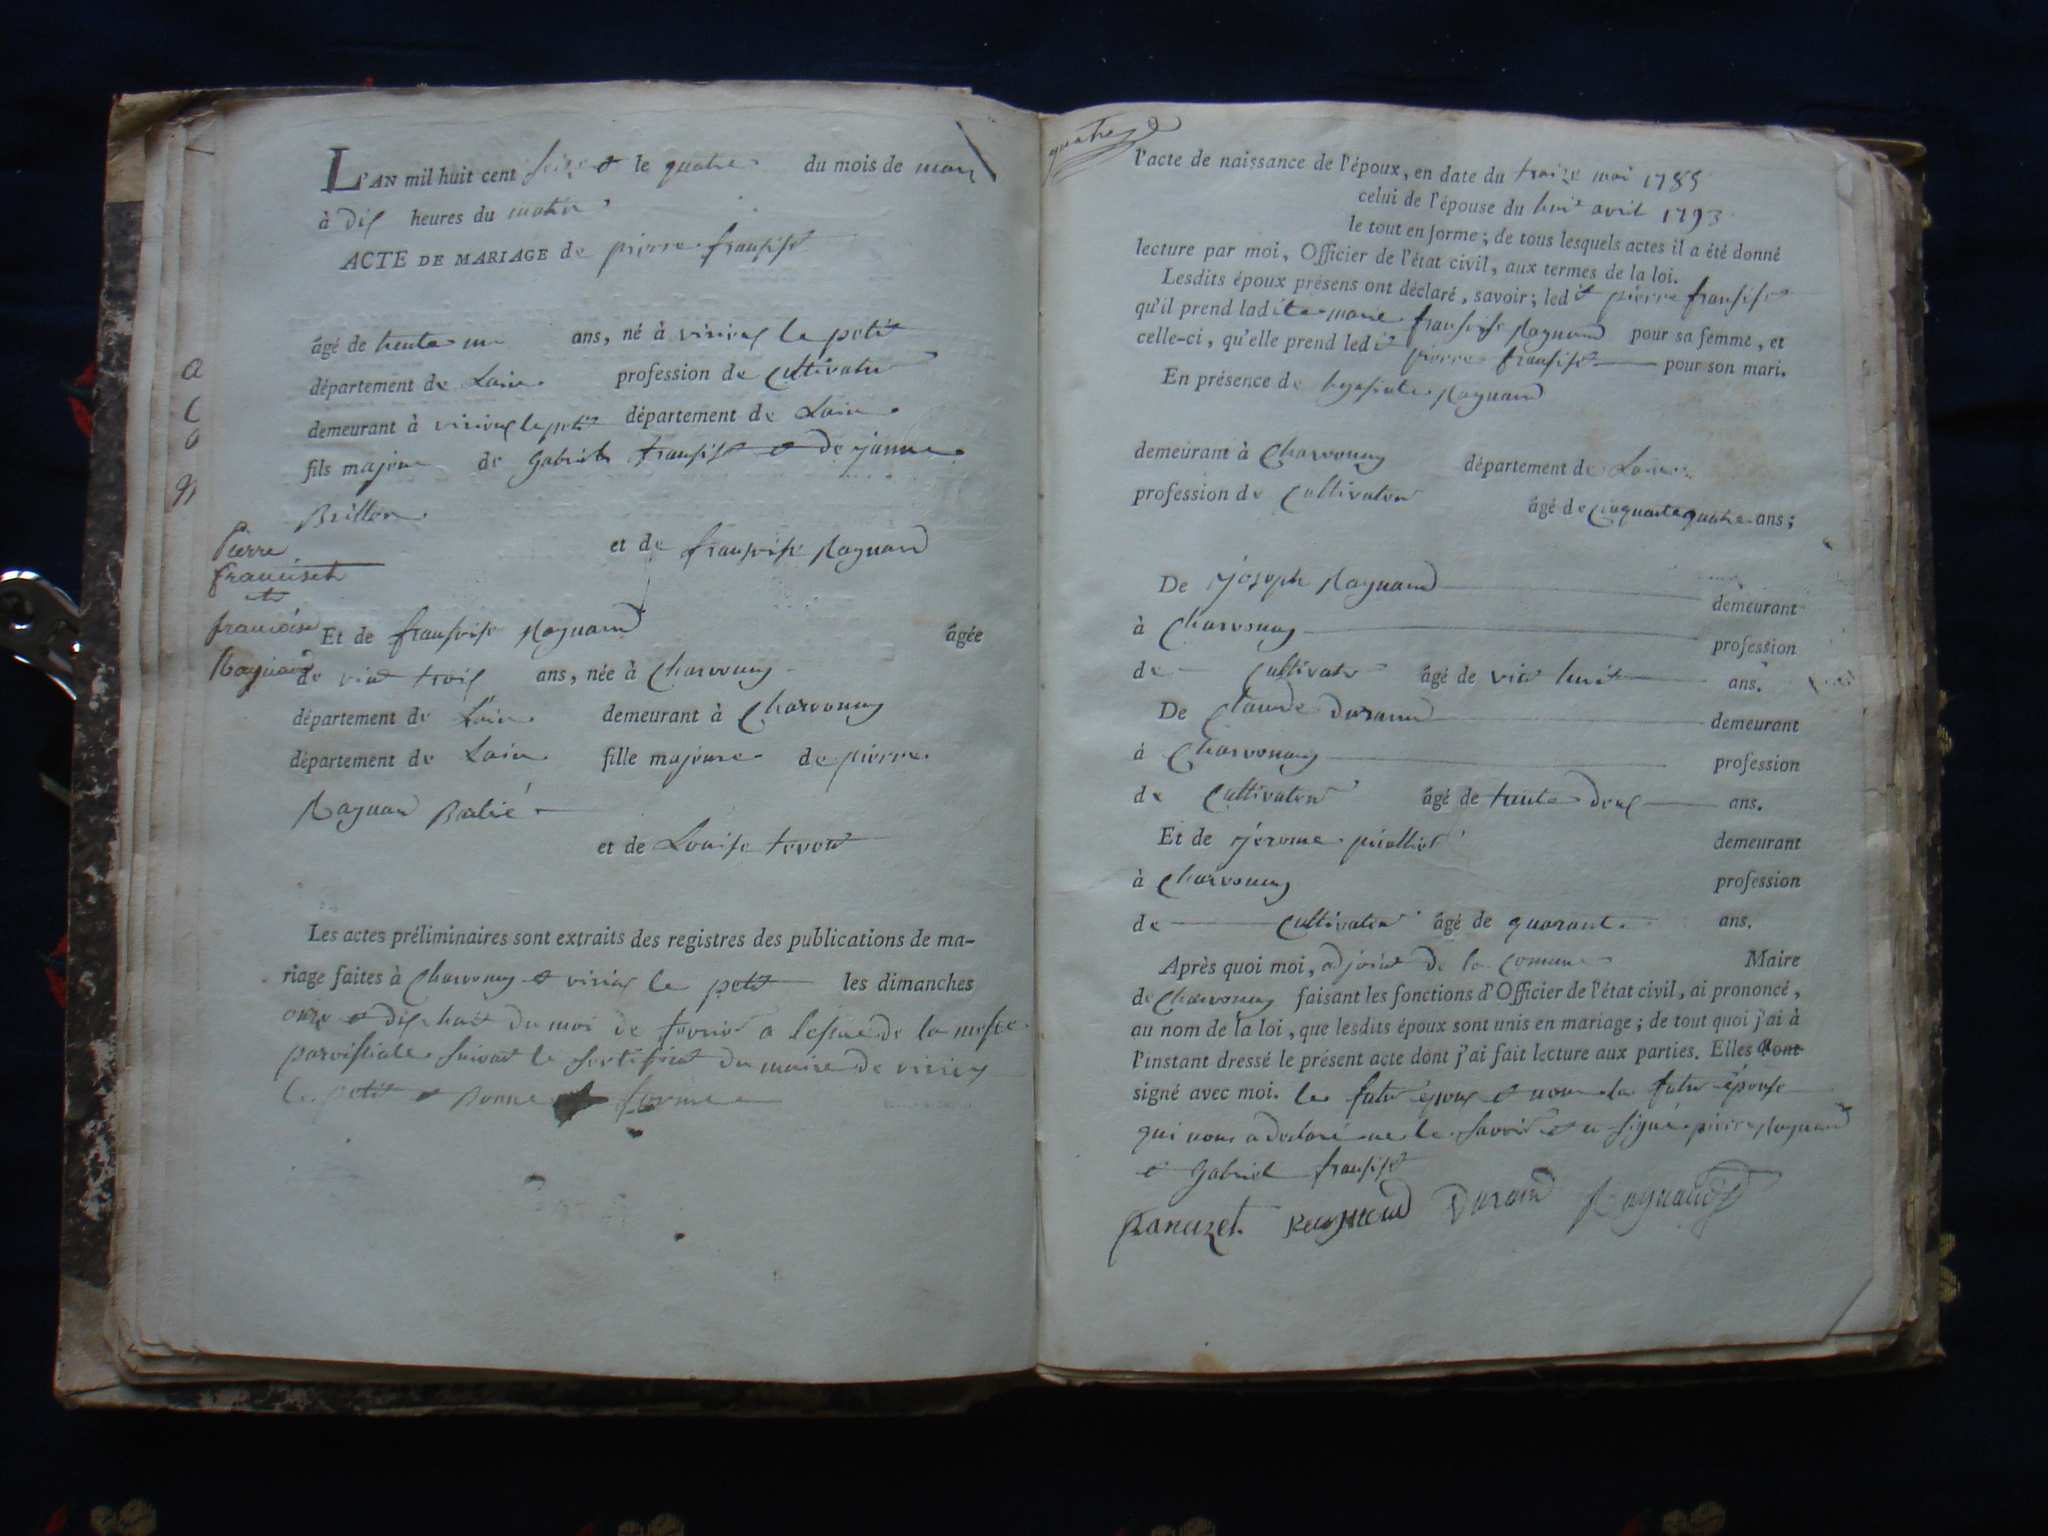 L'AN mil huit cent seize & le quatre du mois de mars
à dix heures du matin
ACTE DE MARIAGE de pierre fransist
âgé de trente un ans, né à virieux le petit
département de Lain profession de Cultivateur
demeurant à virieux le petit département de Lain
fils majeur de gabriel fransist & de janne
Brillon
et de fransoise Raynaud
a
Pierre
franciset
et
francoise
Raynaud
Et de fransoise Raynaud âgée
de vint trois ans, née à Charvonay
département de Lain demeurant à Charvonay
département de Lain fille majeure de pierre
Raynaud
et de Louise
Les actes préliminaires sont extraits des registres des publications de ma-
riage faites à Charvonay & virieu le petit les dimanches
onze & dix huit du moi de fevrier a lissue de la messe
paroissiale suivant le sertificat du maire de virieu
le petit & Bonne forme
quatre
l'acte de naissance de l'époux, en date du traize mai 1785
celui de l'épouse du huit avril 1793
le tout en forme; de tous lesquels actes il a été donné
lecture par moi, Officier de l'état civil, aux termes de la loi.
Lesdits époux présens ont déclaré, savoir; ledit pierre fransist
qu'il prend ladite marie fransoise Raynaud pour sa femme, et
celle-ci, qu'elle prend ledit pierre fransist pour son mari.
En présence de hyasinte Raynaud
demeurant à Charvonay département de Lain
profession de Cultivateur âgé de cinquante quatre ans;
De joseph Raynaud demeurant
à Charvonay profession
de Cultivateur âgé de vint huit ans.
De Claude Durand demeurant
à Charvonay profession
de Cultivateur âgé de trente deux ans.
Et de jérome demeurant
à Charvonay profession
de Cultivateur âgé de quarante ans.
Après quoi moi, adjoint de la comune Maire
de Charvonay faisant les fonctions d'Officier de l'état civil, ai prononcé,
au nom de la loi, que lesdits époux sont unis en mariage; de tout quoi j'ai à
l'instant dressé le présent acte dont j'ai fait lecture aux parties. Elles ont
signé avec moi. le futur époux & non la future épouse
qui nous a declaré ne le savoir & a signé pierre Raynaud
& gabriel fransist
Raynaud Durand Raynaud